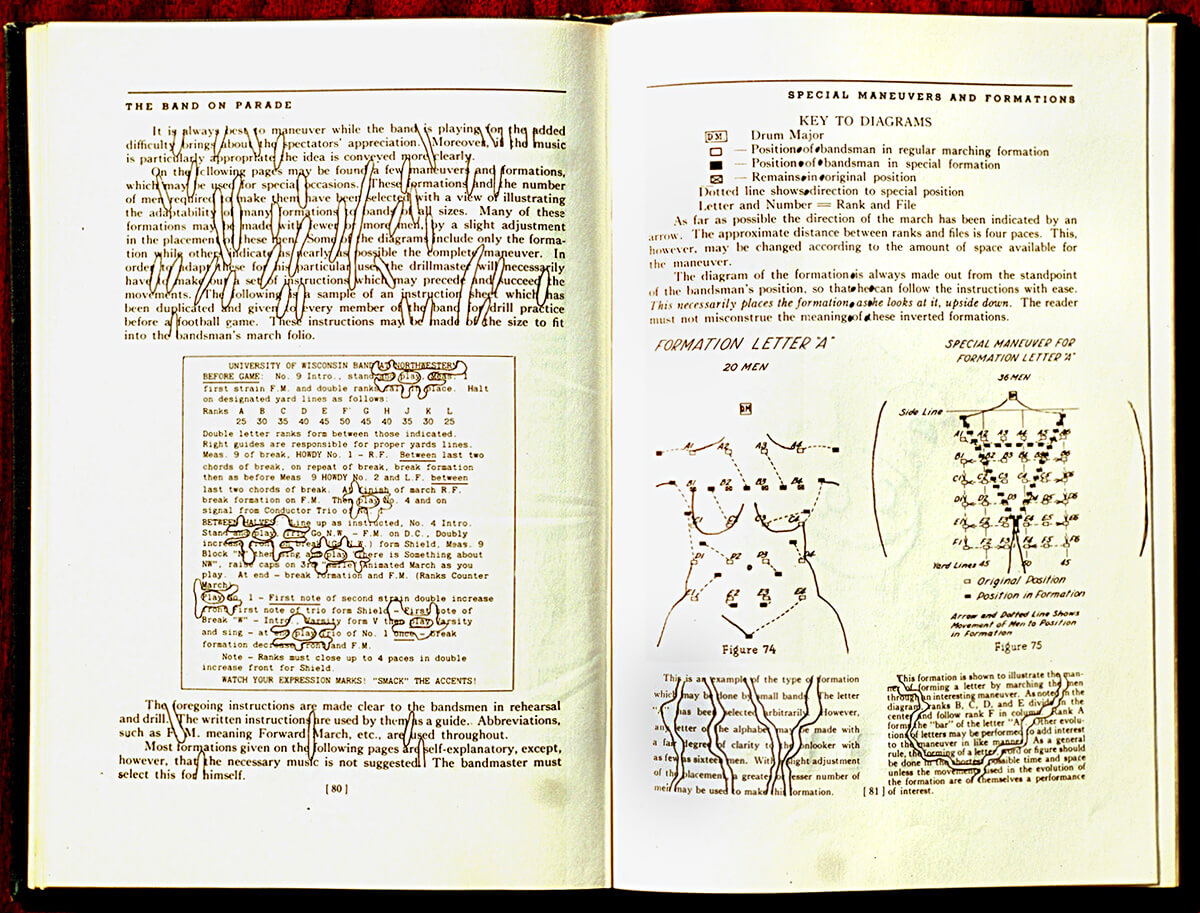 THE BAND ON PARADE
It is always best to maneuver while the band is playing for the added
difficulty brings about the spectators' appreciation. Moreover, if the music
is particularly appropriate the idea is conveyed more clearly.
On the following pages may be found a few maneuvers and formations,
which may be used for special occasions. These formations and the number
of men required to make them have been selected with a view of illustrating
the adaptability of many formations to bands of all sizes. Many of these
formations may be made with fewer or more men, by a slight adjustment
in the placement of these men. Some of the diagrams include only the forma-
tion while others indicate as nearly as possible the complete maneuver. In
order to adapt these for his particular use, the drillmaster will necessarily
have to make out a set of instructions which may precede and succeed the
movements. The following is a sample of an instruction sheet which has
been duplicated and given to every member of the band for drill practice
before a football game. These instructions may be made of the size to fit
into the bandsman's march folio.
UNIVERSITY OF WISCONSIN BAND AT NORTHWESTERN
BEFORE GAME: No. 9 Intro., stand and play. Meas. 1
first strain F.M. and double ranks place. Halt
on designated yard lines as follows:
Ranks A B C D E F G H J K L
25 30 35 40 45 50 45 40 35 30 25
Double letter ranks form between those indicated.
Right guides are responsible for proper yards lines.
Meas. 9 of break, HOWDY No. 1 - R.F. Between last two
chords of break, on repeat of break, break formation
then as before Meas 9 HOWDY No. 2 and L.F. between
last two chords of break. At finish of march R.F.
break formation on F.M. Then play No. 4 and on
signal from Conductor Trio of
BETWEEN HALVES: Line up as instructed, No. 4 Intro.
Stand and play, Trio Go N.W. - F.M. on D.C., Doubly
increase on break (Go N.W.) form Shield, Meas. 9
Block "N" then sing and play There is Something about
NW", raise caps on 3rd Animated March as you
play. At end - break formation and F.M. (Ranks Counter
March)
Play No. 1 - First note of second strain double increase
front First note of trio form Shield - First note of
Break "W" - Intro., Varsity form V then play Varsity
and sing - at end play trio of No. 1 once - break
formation decrease front and F.M.
Note - Ranks must close up to 4 paces in double
increase front for Shield.
WATCH YOUR EXPRESSION MARKS! "SMACK" THE ACCENTS!
The foregoing instructions are made clear to the bandsmen in rehearsal
and drill. The written instructions are used by them as a guide. Abbreviations,
such as F.M. meaning Forward March, etc., are used throughout.
Most formations given on the following pages are self-explanatory, except,
however, that the necessary music is not suggested. The bandmaster must
select this for himself.
[80]
SPECIAL MANEUVERS AND FORMATIONS
KEY TO DIAGRAMS
DM Drum Major
— Position of bandsman in regular marching formation
— Position of bandsman in special formation
— Remains in original position
Dotted line shows direction to special position
Letter and Number = Rank and File
As far as possible the direction of the march has been indicated by an
arrow. The approximate distance between ranks and files is four paces. This,
however, may be changed according to the amount of space available for
the maneuver.
The diagram of the formation is always made out from the standpoint
of the bandsman's position, so that he can follow the instructions with ease.
This necessarily places the formation, as he looks at it, upside down. The reader
must not misconstrue the meaning of these inverted formations.
FORMATION LETTER "A"
20 MEN
DM
A1 A2 A3 A4
B1 B2 B3 B4
C1 C2 C3 C4
D1 D2 D3 D4
E1 E2 E3 E4
Figure 74
SPECIAL MANEUVER FOR
FORMATION LETTER "A"
36 MEN
Side Line
A1 A2 A3 A4 A5 A6
B1 B2 B3 B4 B5 B6
C1 C2 C3 C4 C5 C6
D1 D2 D3 D4 D5 D6
E1 E2 E3 E4 E5 E6
F1 F2 F3 F4 F5 F6
Yard Lines 45 50 45
Original Position
Position in Formation
Arrow and Dotted Line Shows
Movement of Men to Position
in Formation
Figure 75
This is an example of the type of formation
which may be done by small bands. The letter
"A" has been selected arbitrarily. However,
any letter of the alphabet may be made with
a fair degree of clarity to the onlooker with
as few as sixteen men. With slight adjustment
of the placement, a greater or lesser number of
men may be used to make this formation.
This formation is shown to illustrate the man-
ner of forming a letter by marching the men
through an interesting maneuver. As noted in the
diagram, ranks B, C, D, and E divide in the
center and follow rank F in column. Rank A
forms the "bar" of the letter "A". Other evolu-
tions of letters may be performed to add interest
to the maneuver in like manner. As a general
rule, the forming of a letter, word or figure should
be done in the shortest possible time and space
unless the movements used in the evolution of
the formation are of themselves a performance
of interest.
[81]